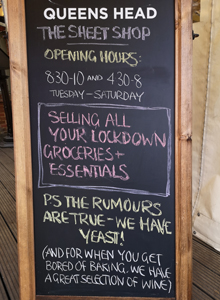 QUEENS HEAD
THE SHEET SHOP
OPENING HOURS:
8:30-10 AND 4:30-8
TUESDAY - SATURDAY
SELLING ALL
YOUR LOCKDOWN
GROCERIES +
ESSENTIALS
PS THE RUMOURS
ARE TRUE - WE HAVE
YEAST!
(AND FOR WHEN YOU GET
BORED OF BAKING. WE HAVE
A GREAT SELECTION OF WINE)